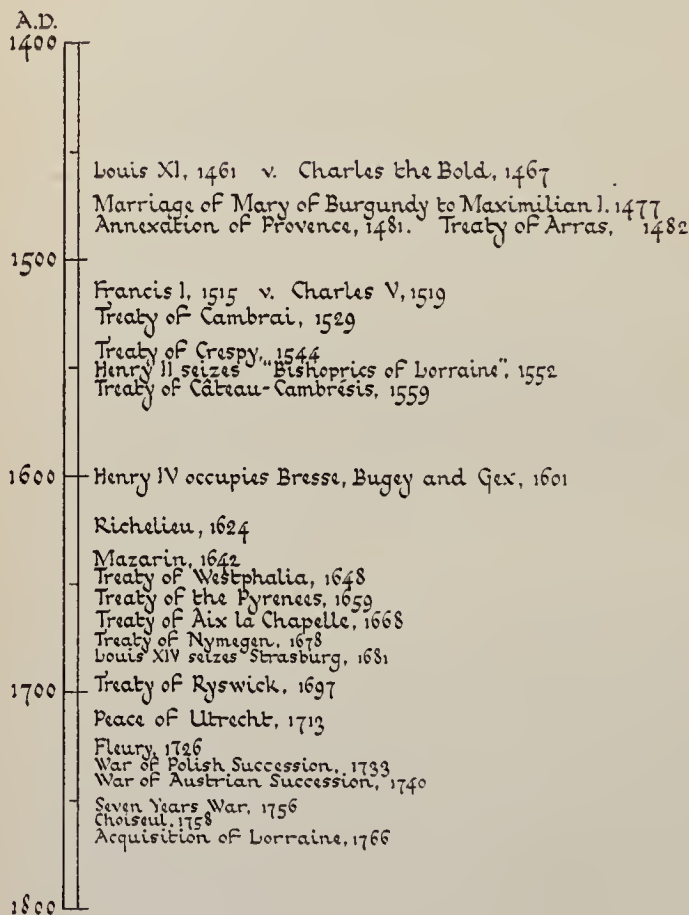 A.D.
1400
Louis XI, 1461 v. Charles the Bold, 1467
Marriage of Mary of Burgundy to Maximilian I. 1477
Annexation of Provence, 1481. Treaty of Arras, 1482
1500
Francis I, 1515 v. Charles V, 1519
Treaty of Cambrai, 1529
Treaty of Crespy, 1544
Henry II seizes "Bishoprics of Lorraine", 1552
Treaty of Câteau-Cambrésis, 1559
1600
Henry IV occupies Bresse, Bugey and Gex, 1601
Richelieu, 1624
Mazarin, 1642
Treaty of Westphalia, 1648
Treaty of the Pyrenees, 1659
Treaty of Aix la Chapelle, 1668
Treaty of Nymegen, 1678
Louis XIV seizes Strasburg, 1681
1700
Treaty of Ryswick, 1697
Peace of Utrecht, 1713
Fleury, 1726
War of Polish Succession, 1733
War of Austrian Succession, 1740
Seven Years War, 1756
Choiseul, 1758
Acquisition of Lorraine, 1766
1800